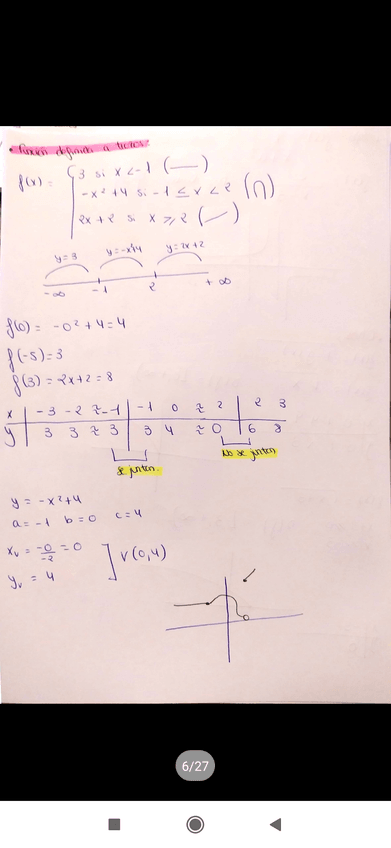 • Función definida a trozos
f(x) = { 3 si x < -1 (—)
-x² + 4 si -1 ≤ x < 2 (∩)
2x + 2 si x ≥ 2 (/)
y = 3 y = -x²+4 y = 2x+2
-∞ -1 2 +∞
f(0) = -0² + 4 = 4
f(-5) = 3
f(3) = 2x + 2 = 8
x | -3 -2 ≈ -1 | -1 0 ≈ 2 | 2 3
y | 3 3 ≈ 3 | 3 4 ≈ 0 | 6 8
se juntan. No se juntan
y = -x² + 4
a = -1 b = 0 c = 4
xᵥ = -0/-2 = 0
yᵥ = 4
V (0,4)
6/27